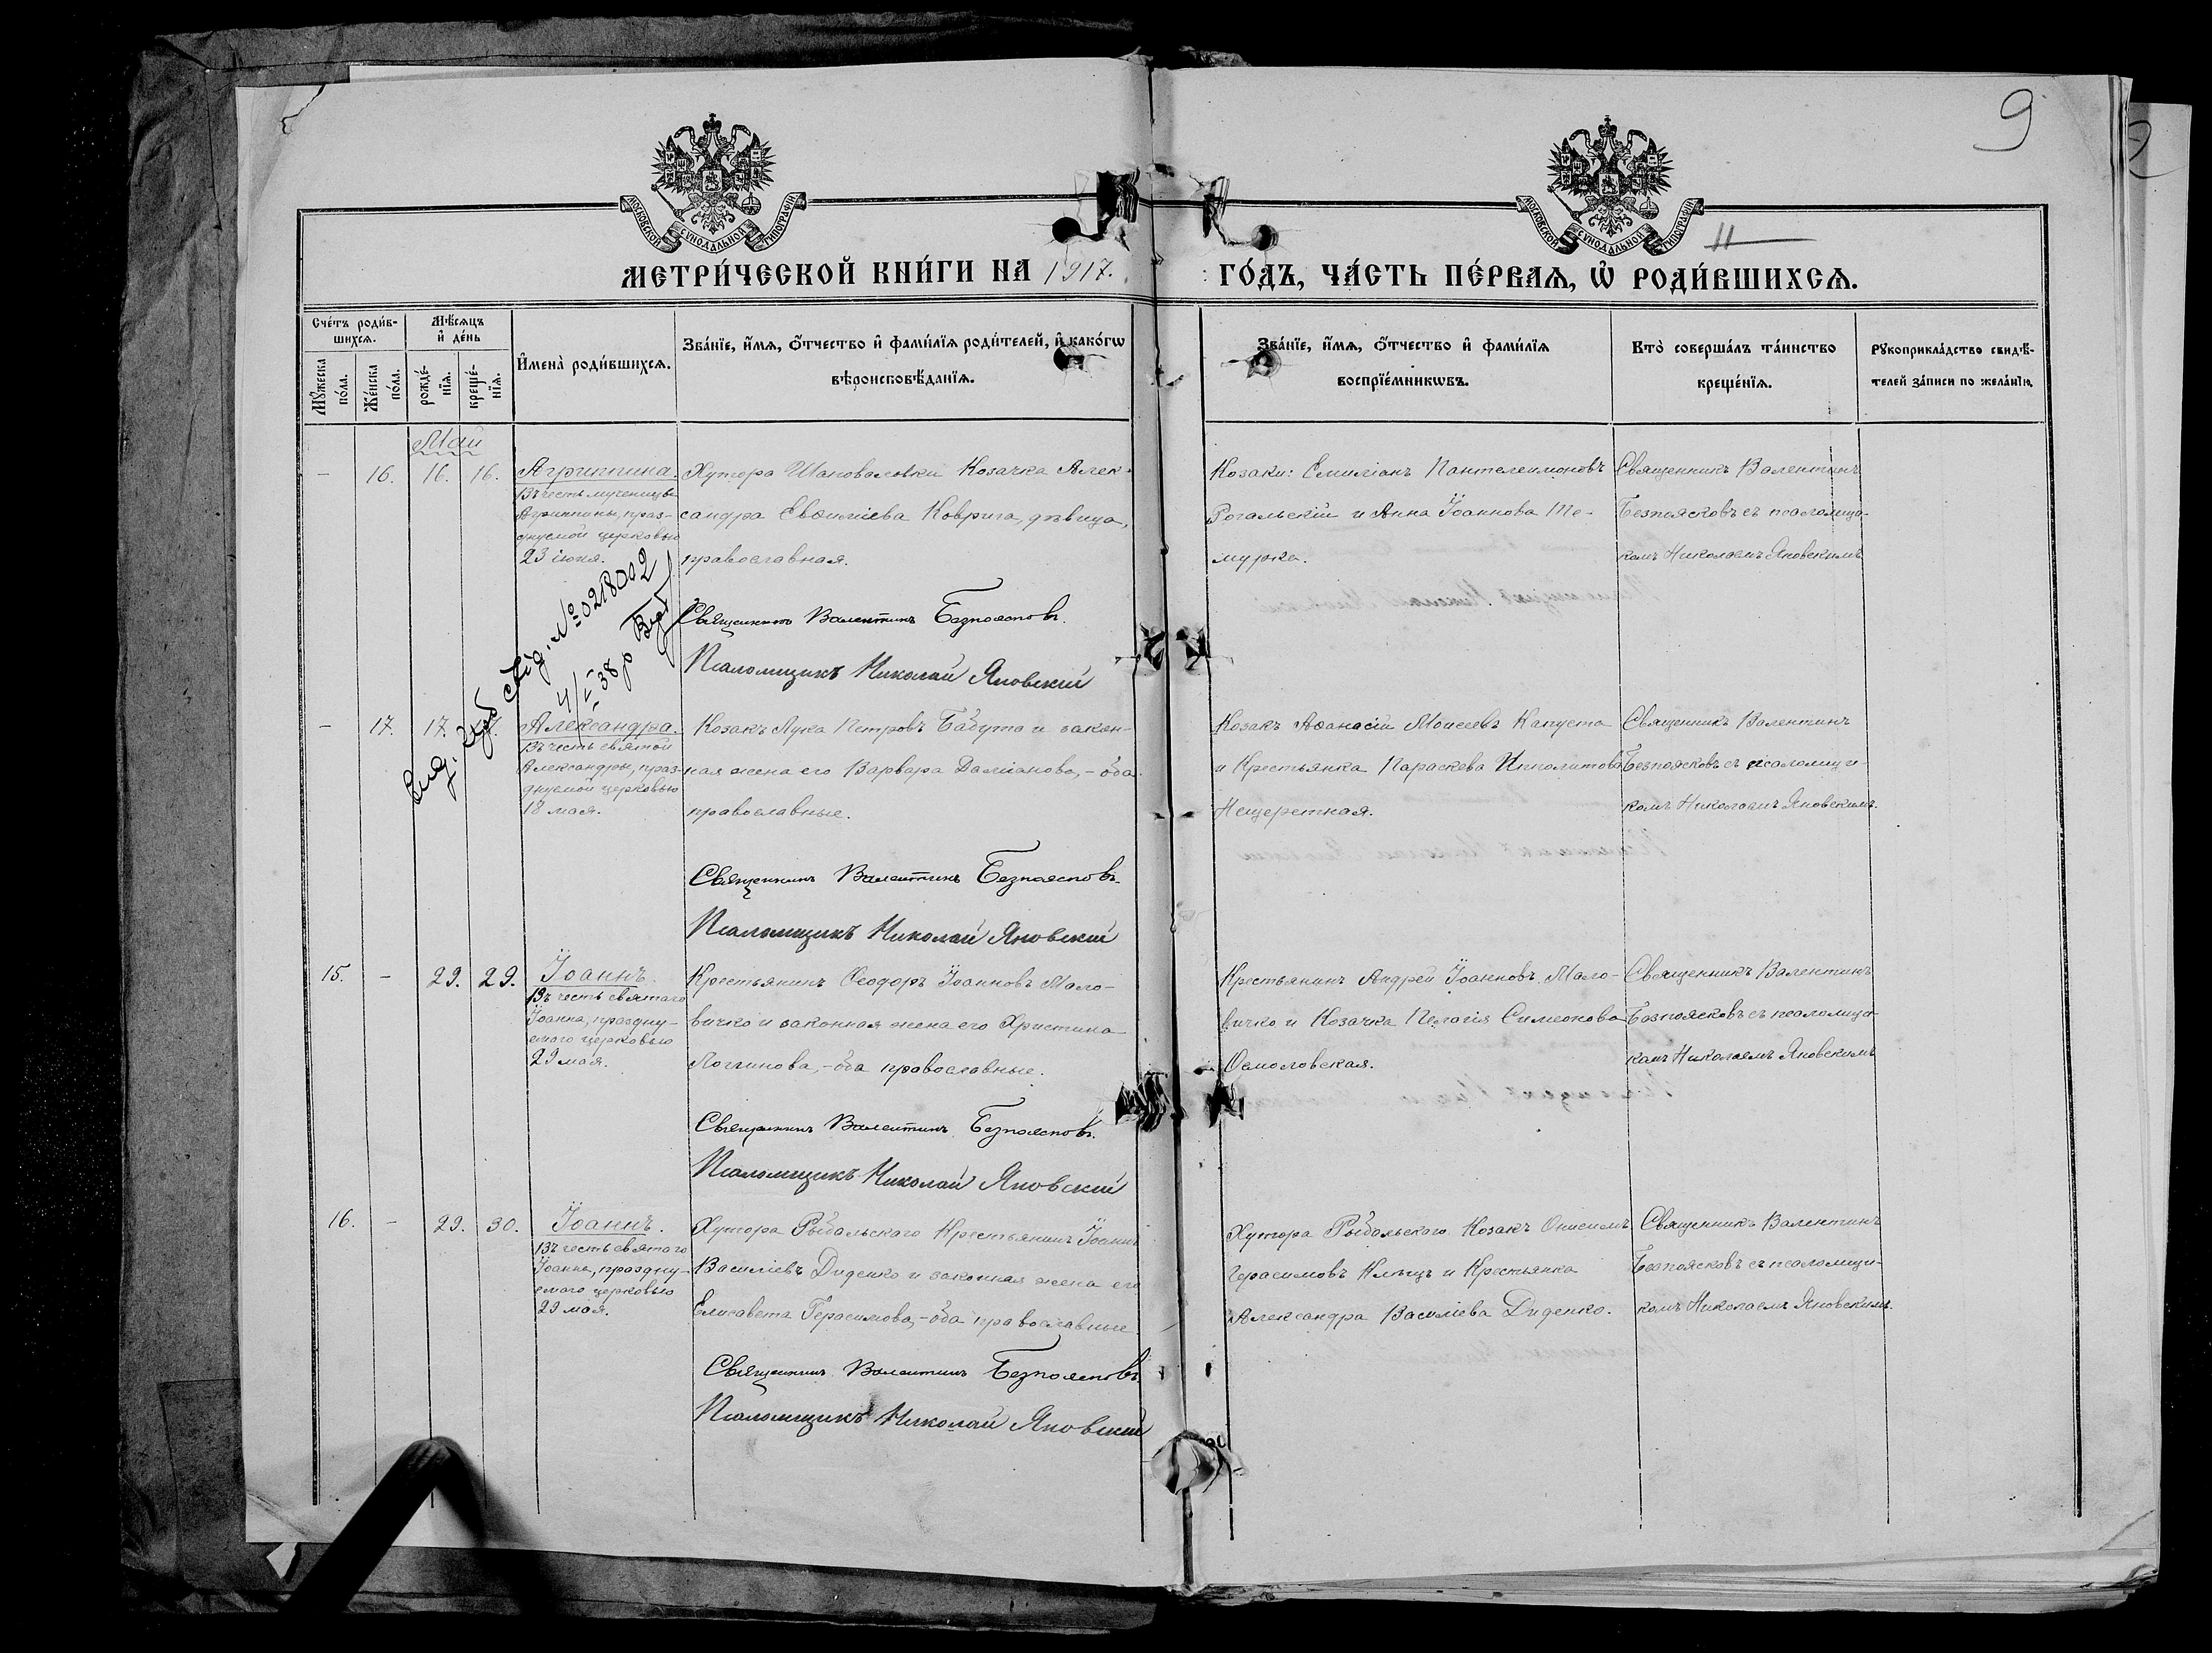 9
МОСКОВСКОЙ СѴНОДАЛЬНОЙ ТИПОГРАФІИ
МОСКОВСКОЙ СѴНОДАЛЬНОЙ ТИПОГРАФІИ
11
МЕТРИ́ЧЕСКОЙ КНИ́ГИ НА 1917. ГО́ДЪ, ЧА́СТЬ ПЕ́РВАѦ, Ѡ҆ РОДИ́ВШИХСѦ.
Сче́тъ роди́в-
шихсѧ.
Мѣ́сѧцъ
и҆ де́нь
Мꙋ́жеска
по́ла.
Же́нска
по́ла.
рожде́-
нїѧ.
креще́-
нїѧ.
И҆мена̀ роди́вшихсѧ.
Зва́нїе, и҆́мѧ, о҆́тчество и҆ фами́лїѧ роди́телей, и҆ како́гѡ
вѣроисповѣ́данїѧ.
Зва́нїе, и҆́мѧ, о҆́тчество и҆ фами́лїѧ
воспрїе́мникѡвъ.
Кто̀ соверша́лъ та́инство
креще́нїѧ.
Рꙋкоприкла́дство свидѣ́-
телей за́писи по жела́нїю.
Май
– 16. 16. 16.
Агриппина.
Въ честь мученицы
Агриппины, праз-
днуемой церковью
23 іюня.
Хутора Шаповаловки Козачка Алек-
сандра Евѳиміева Коврига, дѣвица,
православная.
Священникъ Валентинъ Безпоясковъ.
Псаломщикъ Николай Яновскій
Козаки: Емиліанъ Пантелеимоновъ
Рогальскій и Анна Іоаннова Ше-
мурка.
Священникъ Валентинъ
Безпоясковъ съ псаломщи-
комъ Николаемъ Яновскимъ
№ 0218002
38 р
– 17. 17. 17.
Александра.
Въ честь святой
Александры, праз-
днуемой церковью
18 мая.
Козакъ Лука Петровъ Бабута и закон-
ная жена его Варвара Даміанова,– оба
православные.
Священникъ Валентинъ Безпоясковъ.
Псаломщикъ Николай Яновскій
Козакъ Аѳанасій Моисеевъ Капуста
и Крестьянка Параскева Ипполитова
Нещеретная.
Священникъ Валентинъ
Безпоясковъ съ псаломщи-
комъ Николаемъ Яновскимъ.
15. – 29. 29.
Іоаннъ.
Въ честь святаго
Іоанна, праздну-
емаго церковью
29 мая.
Крестьянинъ Ѳеодоръ Іоанновъ Мало-
вичко и законная жена его Христина
Логгинова,– оба православные.
Священникъ Валентинъ Безпоясковъ.
Псаломщикъ Николай Яновскій
Крестьянинъ Андрей Іоанновъ Мало-
вичко и Козачка Пелагія Симеонова
Осмоловская.
Священникъ Валентинъ
Безпоясковъ съ псаломщи-
комъ Николаемъ Яновскимъ
16. – 29. 30.
Іоаннъ.
Въ честь святаго
Іоанна, праздну-
емаго церковью
29 мая.
Хутора Рыбальскаго Крестьянинъ Іоаннъ
Василіевъ Диденко и законная жена его
Елисавета Герасимова,– оба православные.
Священникъ Валентинъ Безпоясковъ.
Псаломщикъ Николай Яновскій
Хутора Рыбальскаго Козакъ Онисимъ
Герасимовъ Клыщъ и Крестьянка
Александра Василіева Диденко.
Священникъ Валентинъ
Безпоясковъ съ псаломщи-
комъ Николаемъ Яновскимъ.